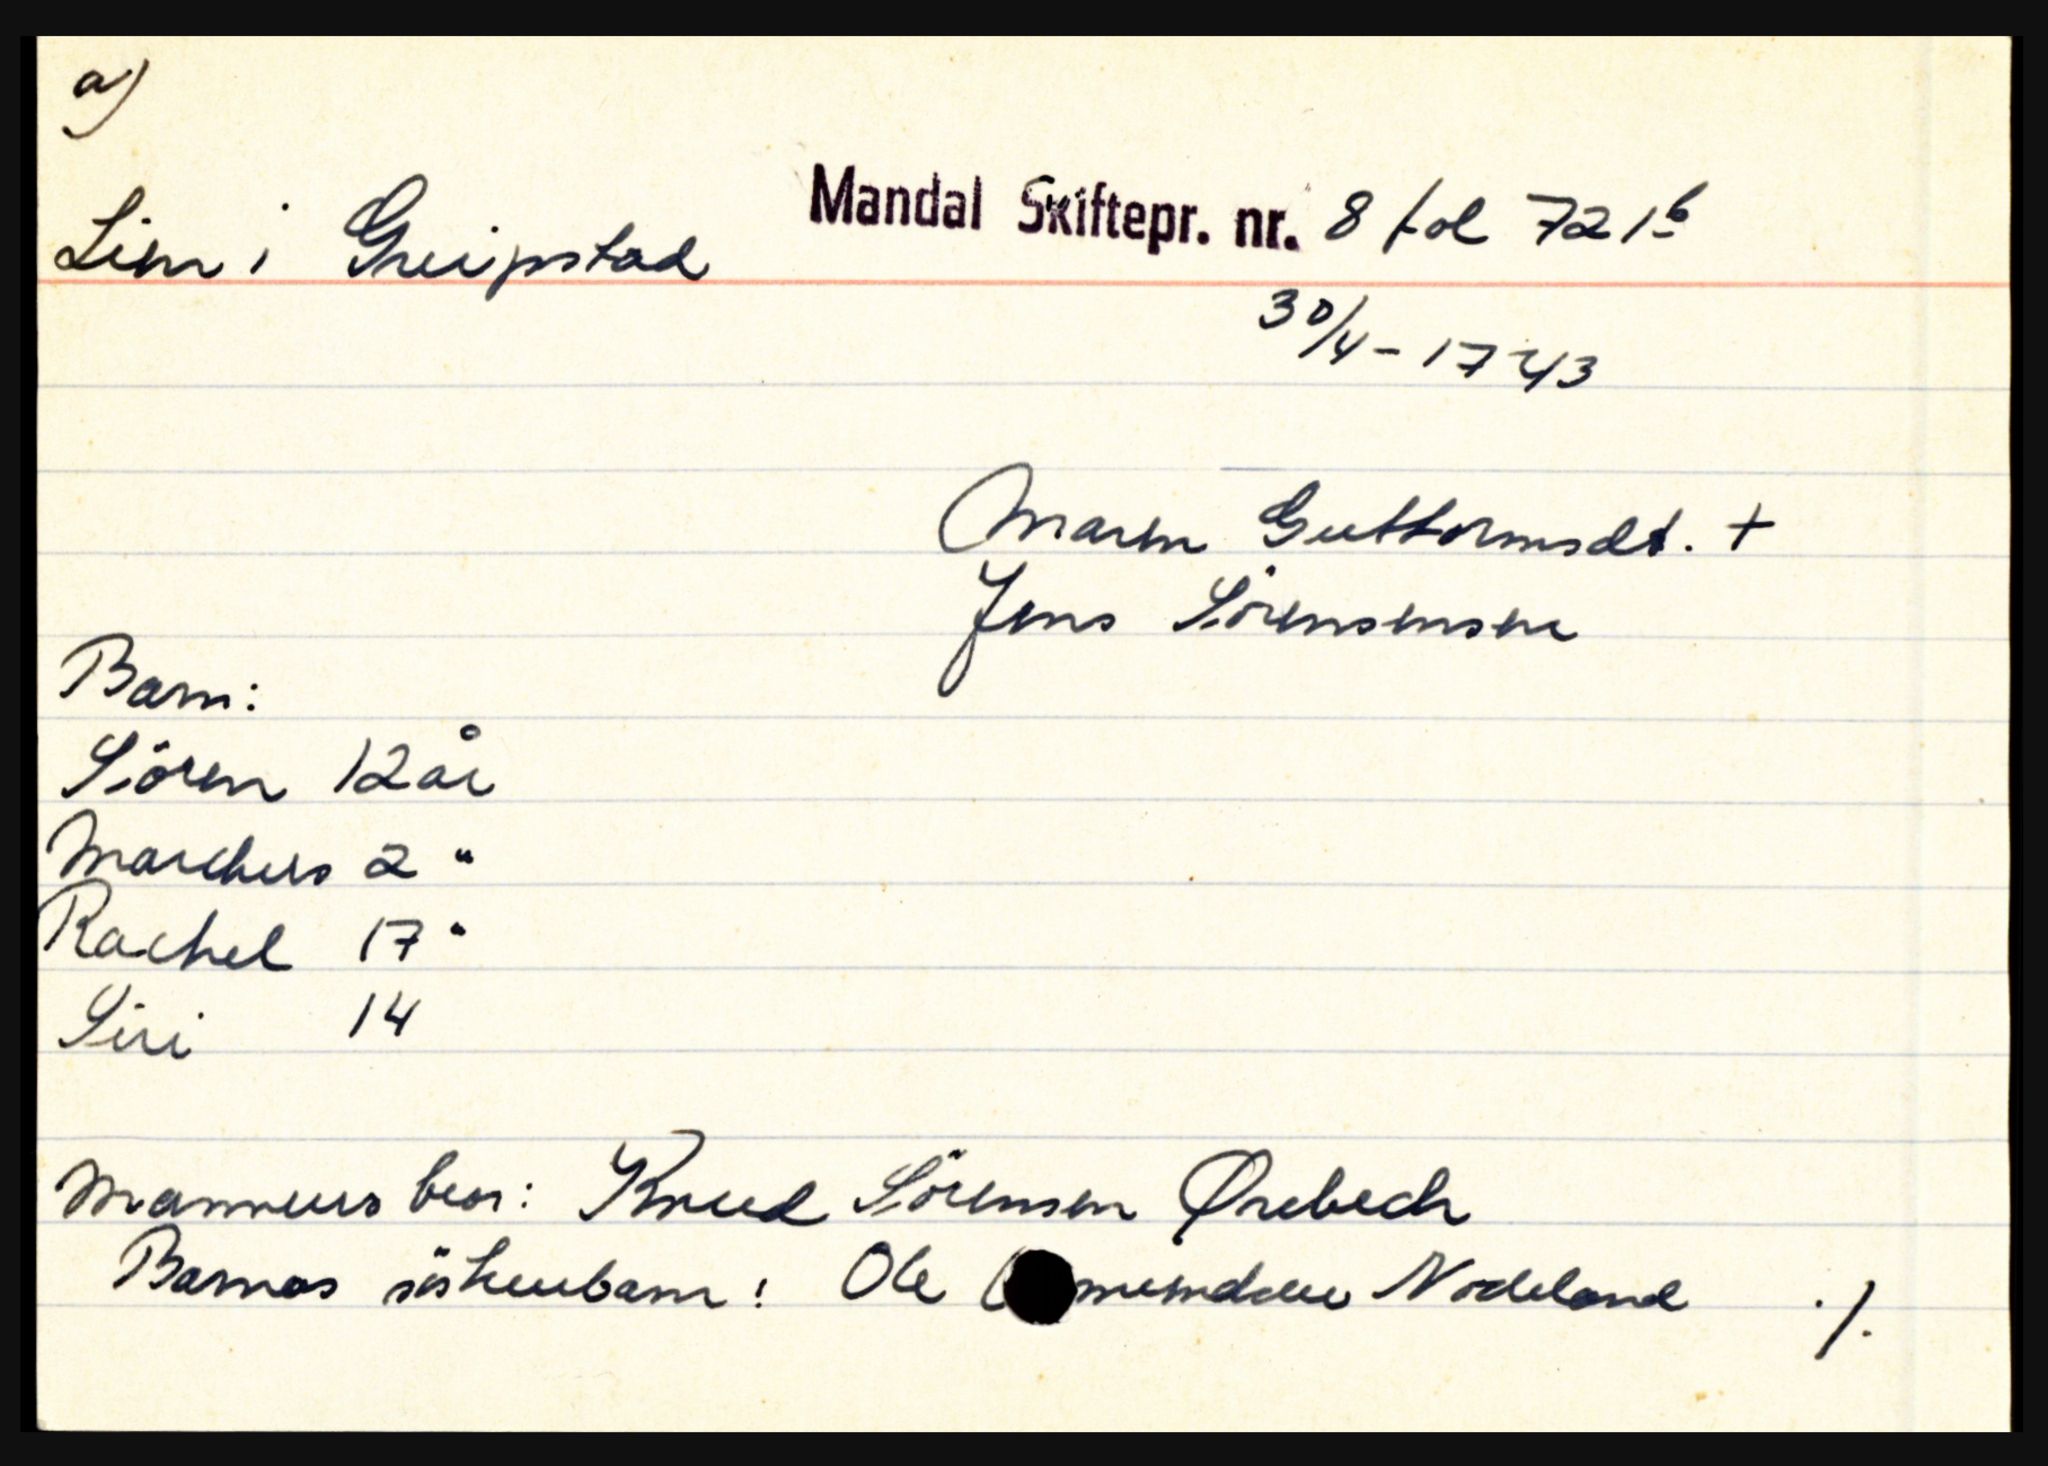 a)
Lien i Greipstad Mandal Skiftepr. nr. 8 fol 721b
30/4-1743
Maren Guttormsdt. +
Jens Sörensensen
Barn:
Sören 12 år
Marchus 2 "
Rachel 17 "
Siri 14
Mannens bror: Knud Sörensen Ørebech
Barnas söskenbarn: Ole Nodeland ./.